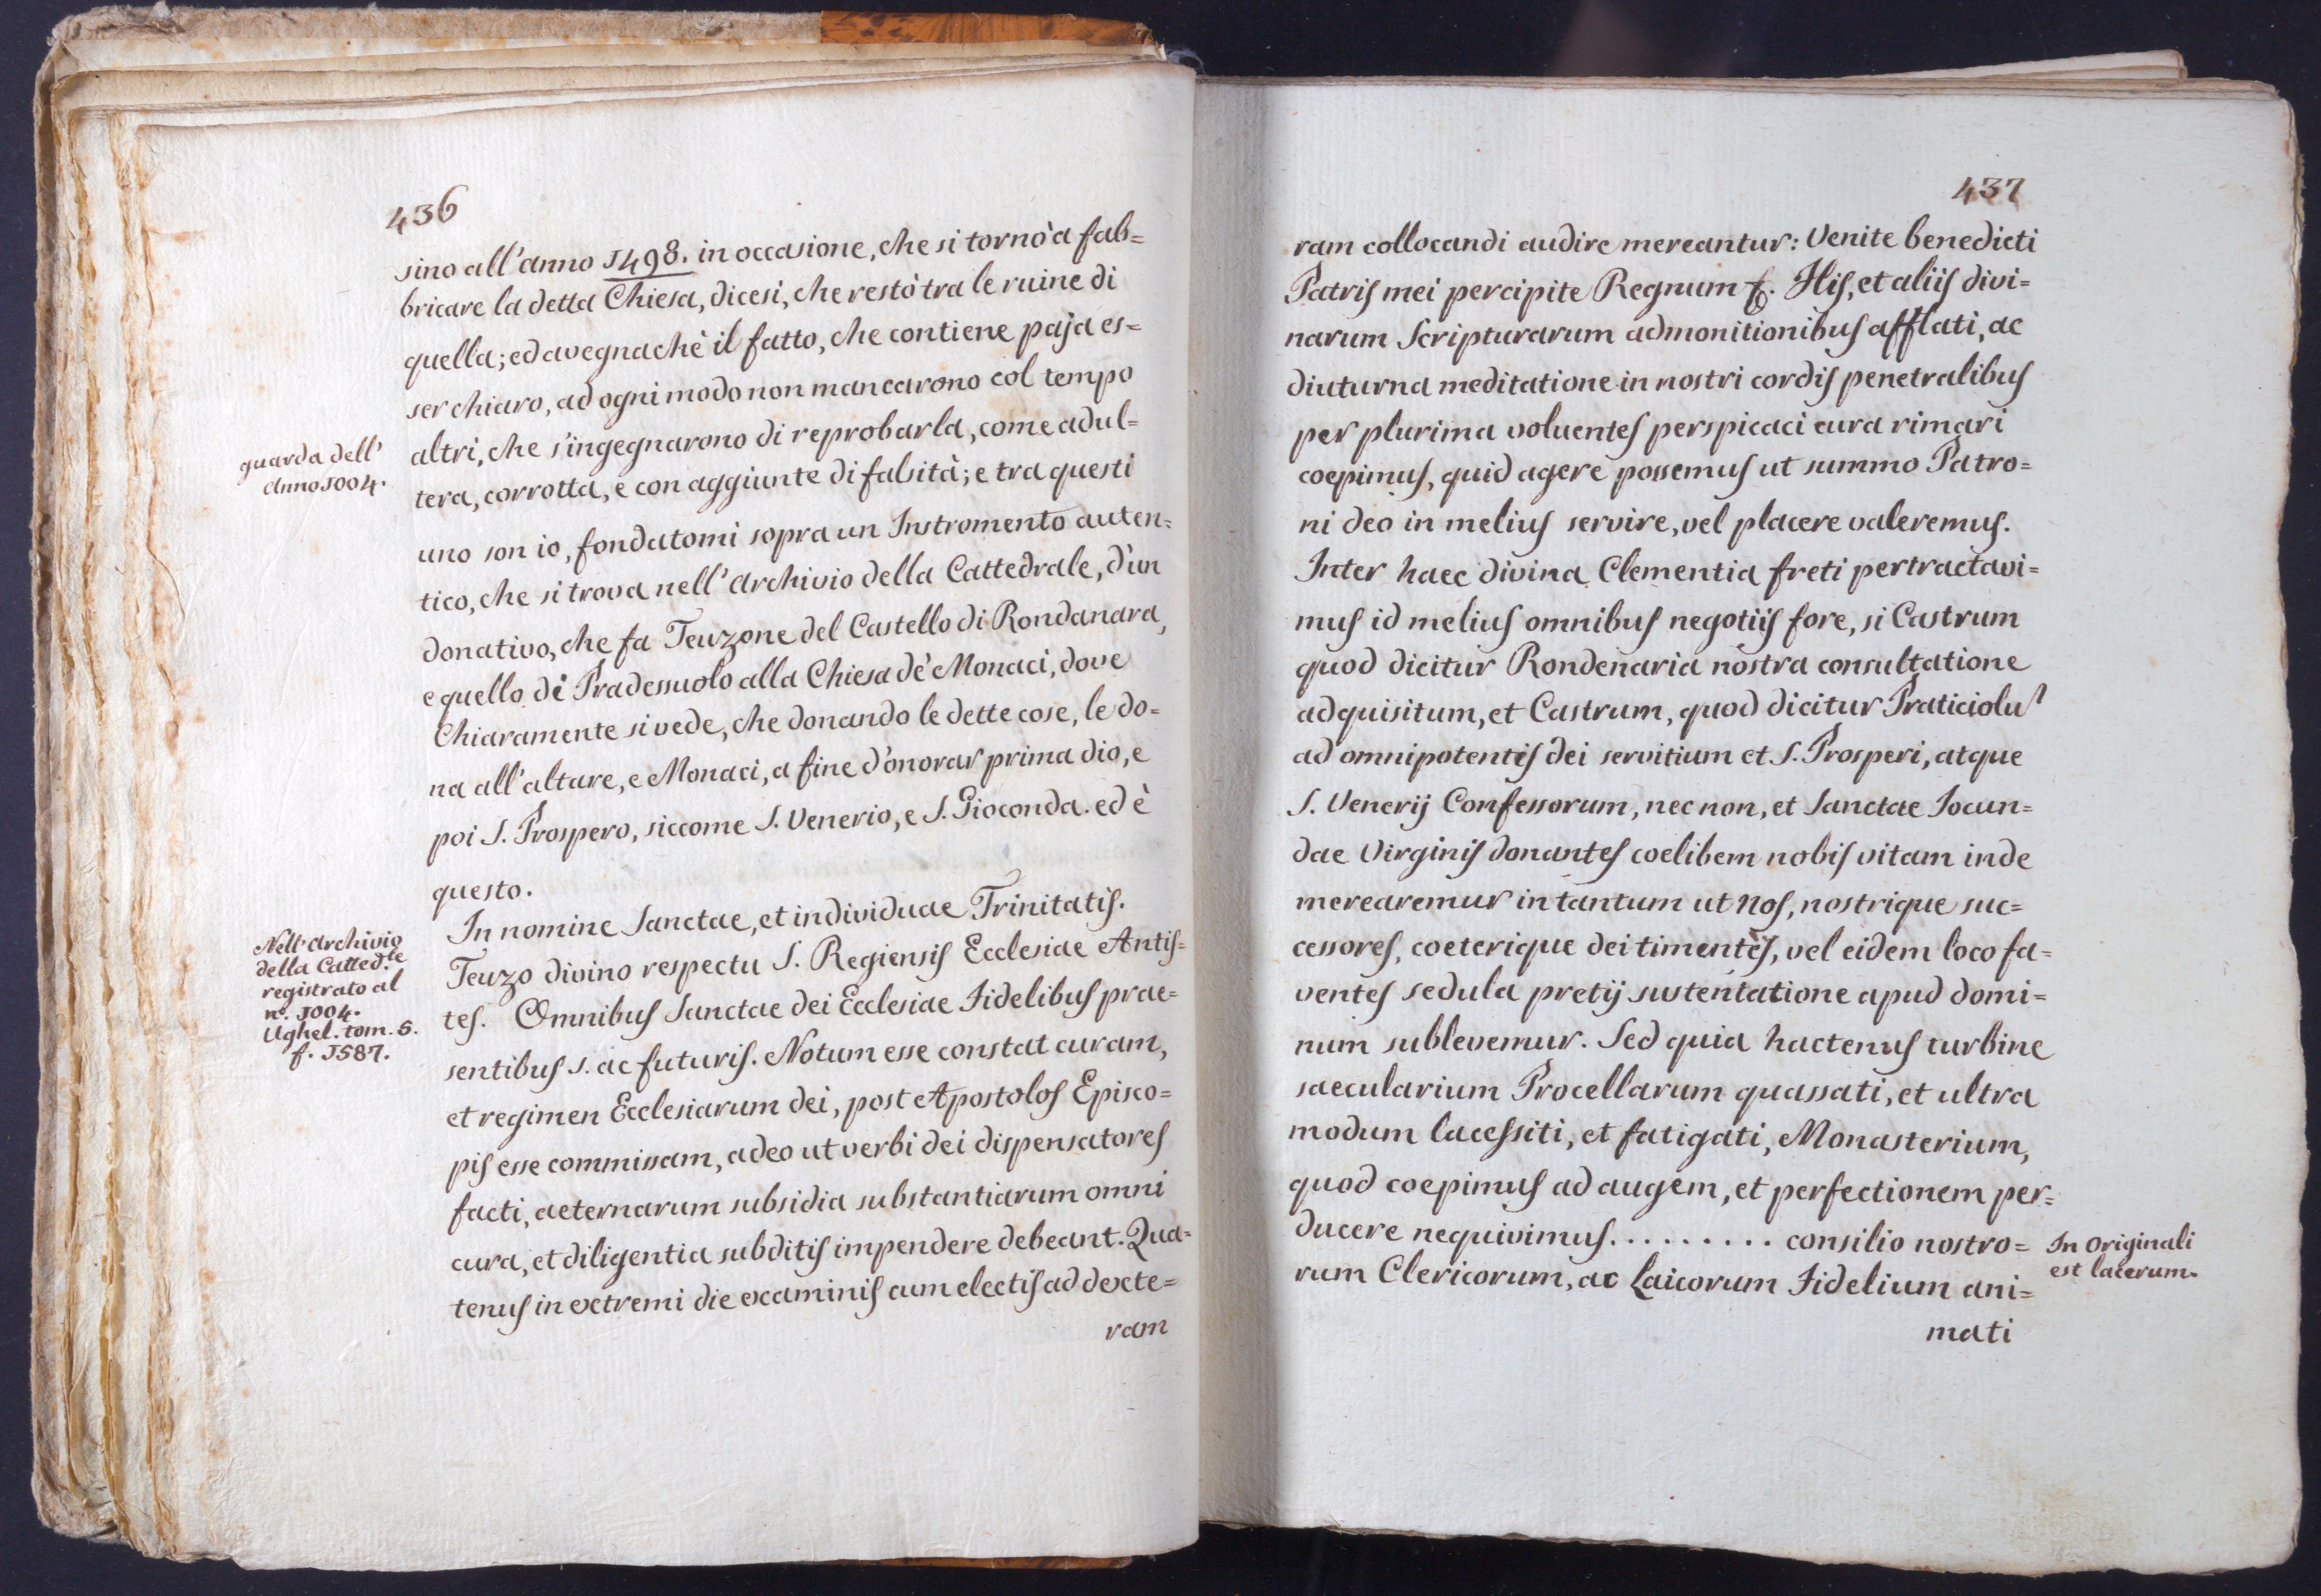 436
sino all'anno 1498. in occasione, che si tornò a fab=
bricare la detta Chiesa, dicesi, che restò tra le ruine di
quella; ed avegnachè il fatto, che contiene paja es=
ser chiaro, ad ogni modo non mancarono col tempo
altri, che s'ingegnarono di reprobarla, come adul=
tera, corrotta, e con aggiunte di falsità; e tra questi
uno son io, fondatomi sopra un Instromento auten=
tico, che si trova nell'archivio della Cattedrale, d'un
donativo, che fa Teuzone del Castello di Rondanara,
e quello di Pradessuolo alla Chiesa de' Monaci, dove
Chiaramente si vede, che donando le dette cose, le do=
na all'altare, e Monaci, a fine d'onorar prima dio, e
poi S. Prospero, siccome S. Venerio, e S. Gioconda. ed è
questo.
In nomine Sanctae, et individuae Trinitatis.
Teuzo divino respectu S. Regiensis Ecclesiae Antis=
tes. Omnibus Sanctae dei Ecclesiae Fidelibus prae=
sentibus s. ac futuris. Notum esse constat curam,
et regimen Ecclesiarum dei, post Apostolos Episco=
pis esse commissam, adeo ut verbi dei dispensatores
facti, aeternarum subsidia substantiarum omni
cura, et diligentia subditis impendere debeant. Qua=
tenus in extremi die examinis cum electis ad dexte=
ram
guarda dell'
anno 1004.
Nell'archivio
della Catted.le
registrato al
no. 1004.
Ughel. tom. 5.
f. 1587.
437
ram collocandi audire mereantur: Venite benedicti
Patris mei percipite Regnum &. His, et aliis divi=
narum Scripturarum admonitionibus afflati, ac
diuturna meditatione in nostri cordis penetralibus
per plurima voluentes perspicaci cura rimari
coepimus, quid agere possemus ut summo Patro=
ni deo in melius servire, vel placere valeremus.
Inter haec divina Clementia freti pertractavi=
mus id melius omnibus negotiis fore, si Castrum
quod dicitur Rondenaria nostra consultatione
adquisitum, et Castrum, quod dicitur Praticiolu'
ad omnipotentis dei servitium et S. Prosperi, atque
S. Venerij Confessorum, nec non, et Sanctae Jocun=
dae Virginis donantes coelibem nobis vitam inde
merearemur in tantum ut Nos, nostrique suc=
cessores, coeterique dei timentes, vel eidem loco fa=
ventes sedula pretij sustentatione apud domi=
num sublevemur. Sed quia hactenus turbine
saecularium Procellarum quassati, et ultra
modum lacessiti, et fatigati, Monasterium,
quod coepimus ad augem, et perfectionem per=
ducere nequivimus. . . . . . . . . consilio nostro=
rum Clericorum, ac Laicorum Fidelium ani=
mati
In originali
est lacerum.